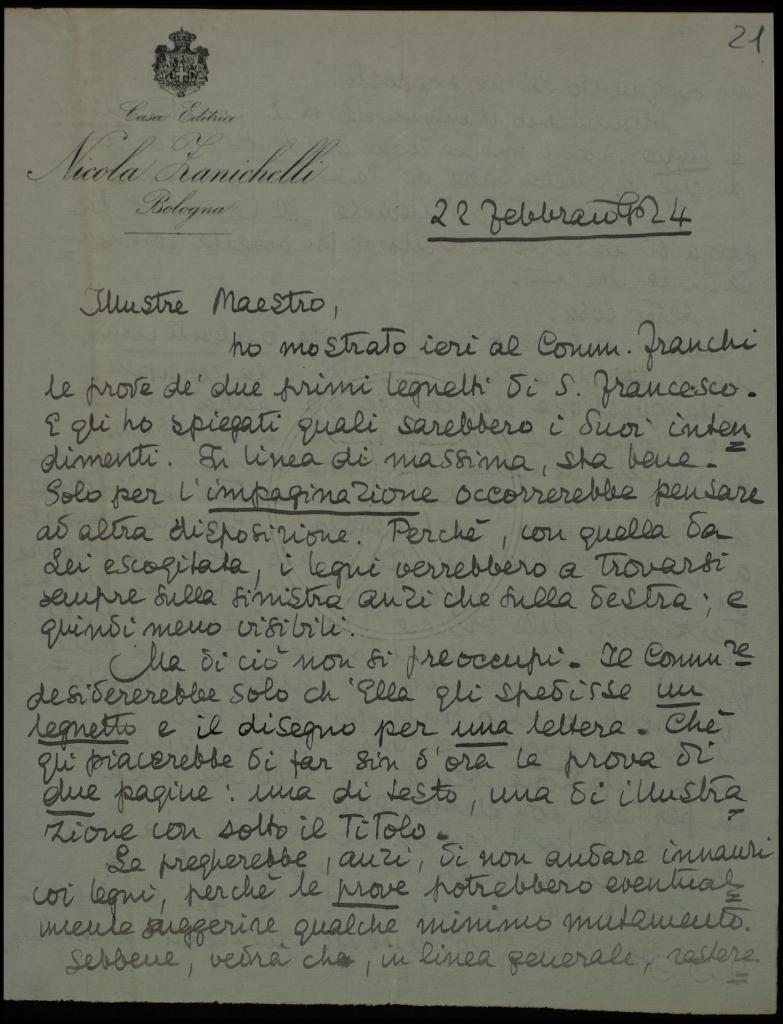 21
Casa Editrice
Nicola Zanichelli
Bologna
22 Febbraio 1924
Illustre Maestro,
ho mostrato ieri al Comm. Franchi
le prove de' due primi legnetti di S. Francesco.
E gli ho spiegati quali sarebbero i Suoi inten=
dimenti. In linea di massima, sta bene.
Solo per l'impaginazione occorrerebbe pensare
ad altra disposizione. Perchè, con quella da
Lei escogitata, i legni verrebbero a trovarsi
sempre sulla sinistra anzi che sulla destra; e
quindi meno visibili.
Ma di ciò non si preoccupi. Il Commre
desidererebbe solo ch'Ella gli spedisse un
legnetto e il disegno per una lettera. Chè
gli piacerebbe di far sin d'ora la prova di
due pagine: una di testo, una di illustra=
zione con sotto il titolo.
La pregherebbe, anzi, di non andare innanzi
coi legni, perchè le prove potrebbero eventual=
mente suggerire qualche minimo mutamento.
Sebbene, vedrà che, in linea generale, restere=